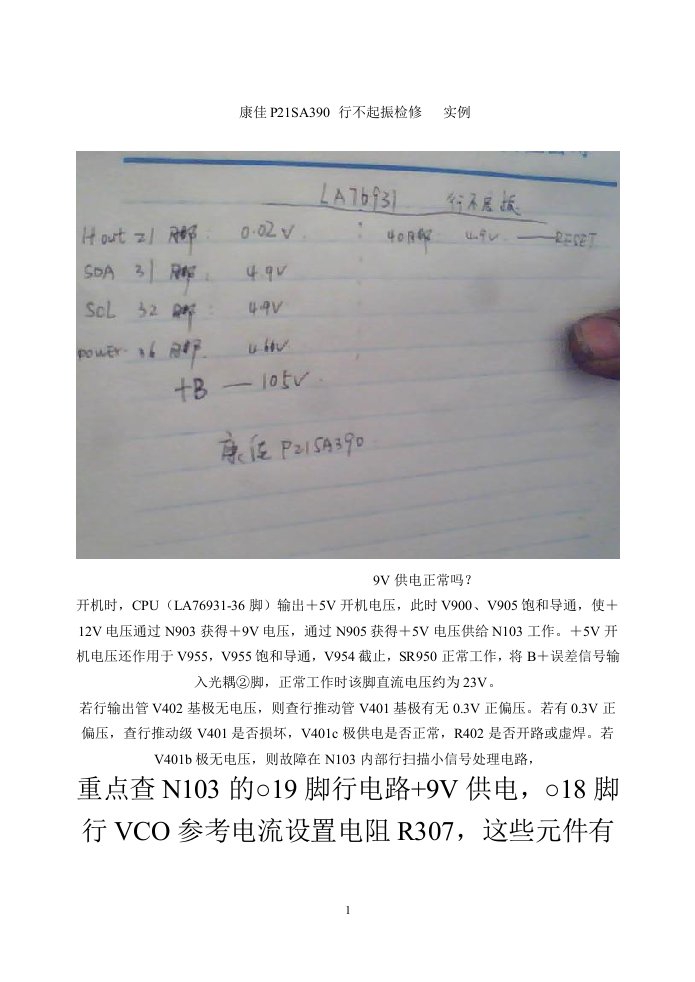 康佳 P21SA390 行不起振检修 实例
LA76931 行不启振
Hout 21 脚: 0.02V : 40脚 4.9V —— RESET
SDA 31 脚: 4.9V
SCL 32 脚: 4.9V
power 36 脚. 4.66V
+B — 105V.
康佳 P21SA390
9V 供电正常吗？
开机时，CPU（LA76931-36 脚）输出＋5V 开机电压，此时 V900、V905 饱和导通，使＋
12V 电压通过 N903 获得＋9V 电压，通过 N905 获得＋5V 电压供给 N103 工作。＋5V 开
机电压还作用于 V955，V955 饱和导通，V954 截止，SR950 正常工作，将 B＋误差信号输
入光耦②脚，正常工作时该脚直流电压约为 23V。
若行输出管 V402 基极无电压，则查行推动管 V401 基极有无 0.3V 正偏压。若有 0.3V 正
偏压，查行推动级 V401 是否损坏，V401c 极供电是否正常，R402 是否开路或虚焊。若
V401b 极无电压，则故障在 N103 内部行扫描小信号处理电路，
重点查 N103 的○19 脚行电路+9V 供电，○18 脚
行 VCO 参考电流设置电阻 R307，这些元件有
1